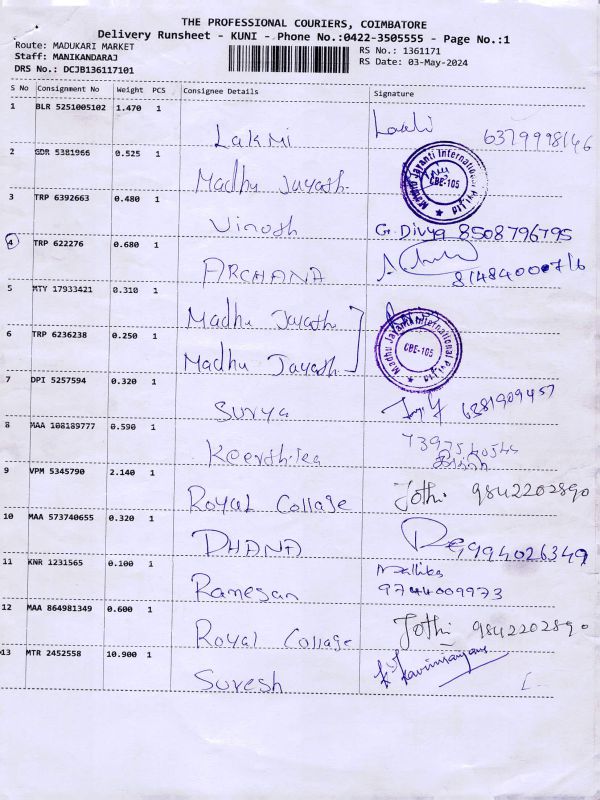 THE PROFESSIONAL COURIERS, COIMBATORE
Delivery Runsheet - KUNI - Phone No.:0422-3505555 - Page No.:1
Route: MADUKARI MARKET
Staff: MANIKANDARAJ
DRS No.: DCJB136117101
RS No.: 1361171
RS Date: 03-May-2024
S No Consignment No Weight PCS Consignee Details Signature
1 BLR 5251005102 1.470 1 Lakmi 6379998146
2 GDR 5381966 0.525 1 Madhu Jayath Madhu Jayanti International Pvt Ltd CBE-105
3 TRP 6392663 0.480 1 Vinosh G. Divya 8508796795
4 TRP 622276 0.680 1 ARCHANA
5 MTY 17933421 0.310 1 Madhu Jayath
6 TRP 6236238 0.250 1 Madhu Jayath Madhu Jayanti International Pvt Ltd CBE-105
7 DPI 5257594 0.320 1 Surya 6381909457
8 MAA 108189777 0.590 1
9 VPM 5345790 2.140 1 Royal Collage Jothi 9842202890
10 MAA 573740655 0.320 1 DHANA 9994026349
11 KNR 1231565 0.100 1 Ramesan Mallika 9744009973
12 MAA 864981349 0.600 1 Royal Collage Jothi 9842202890
13 MTR 2452558 10.900 1 Suresh